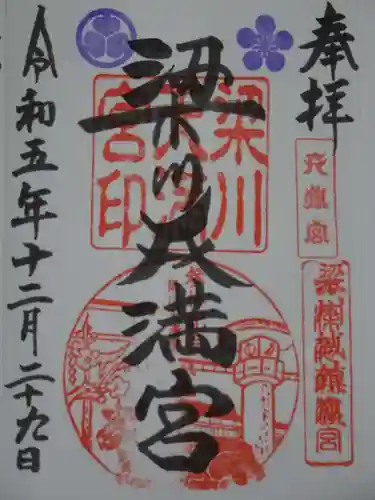 奉拝
梁川天満宮
梁川天満宮印
天満宮
令和五年十二月二十九日